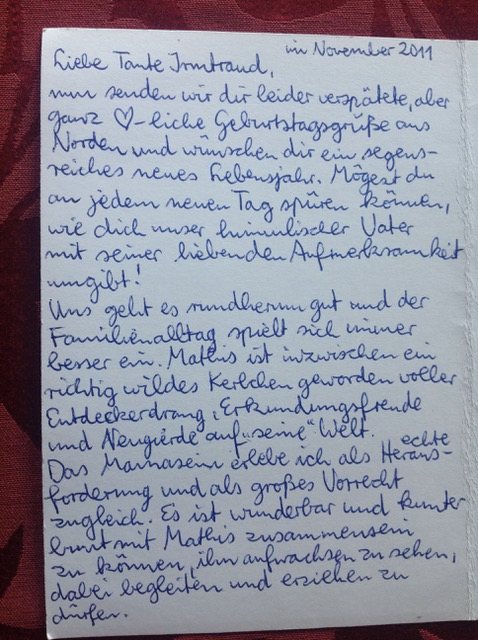 im November 2011
Liebe Tante Irmtraud,
nun senden wir dir leider verspätete, aber
ganz ♡-liche Geburtstagsgrüße aus
Norden und wünschen dir ein segens-
reiches neues Lebensjahr. Mögest du
an jedem neuen Tag spüren können,
wie dich unser himmlischer Vater
mit seiner liebenden Aufmerksamkeit
umgibt!
Uns geht es rundherum gut und der
Familienalltag spielt sich immer
besser ein. Mathis ist inzwischen ein
richtig wildes Kerlchen geworden voller
Entdeckerdrang, Erkundungsfreude
und Neugierde auf "seine" Welt.
Das Mamasein erlebe ich als echte Heraus-
forderung und als großes Vorrecht
zugleich. Es ist wunderbar und kunter
bunt mit Mathis zusammensein
zu können, ihn aufwachsen zu sehen,
dabei begleiten und erziehen zu
dürfen.